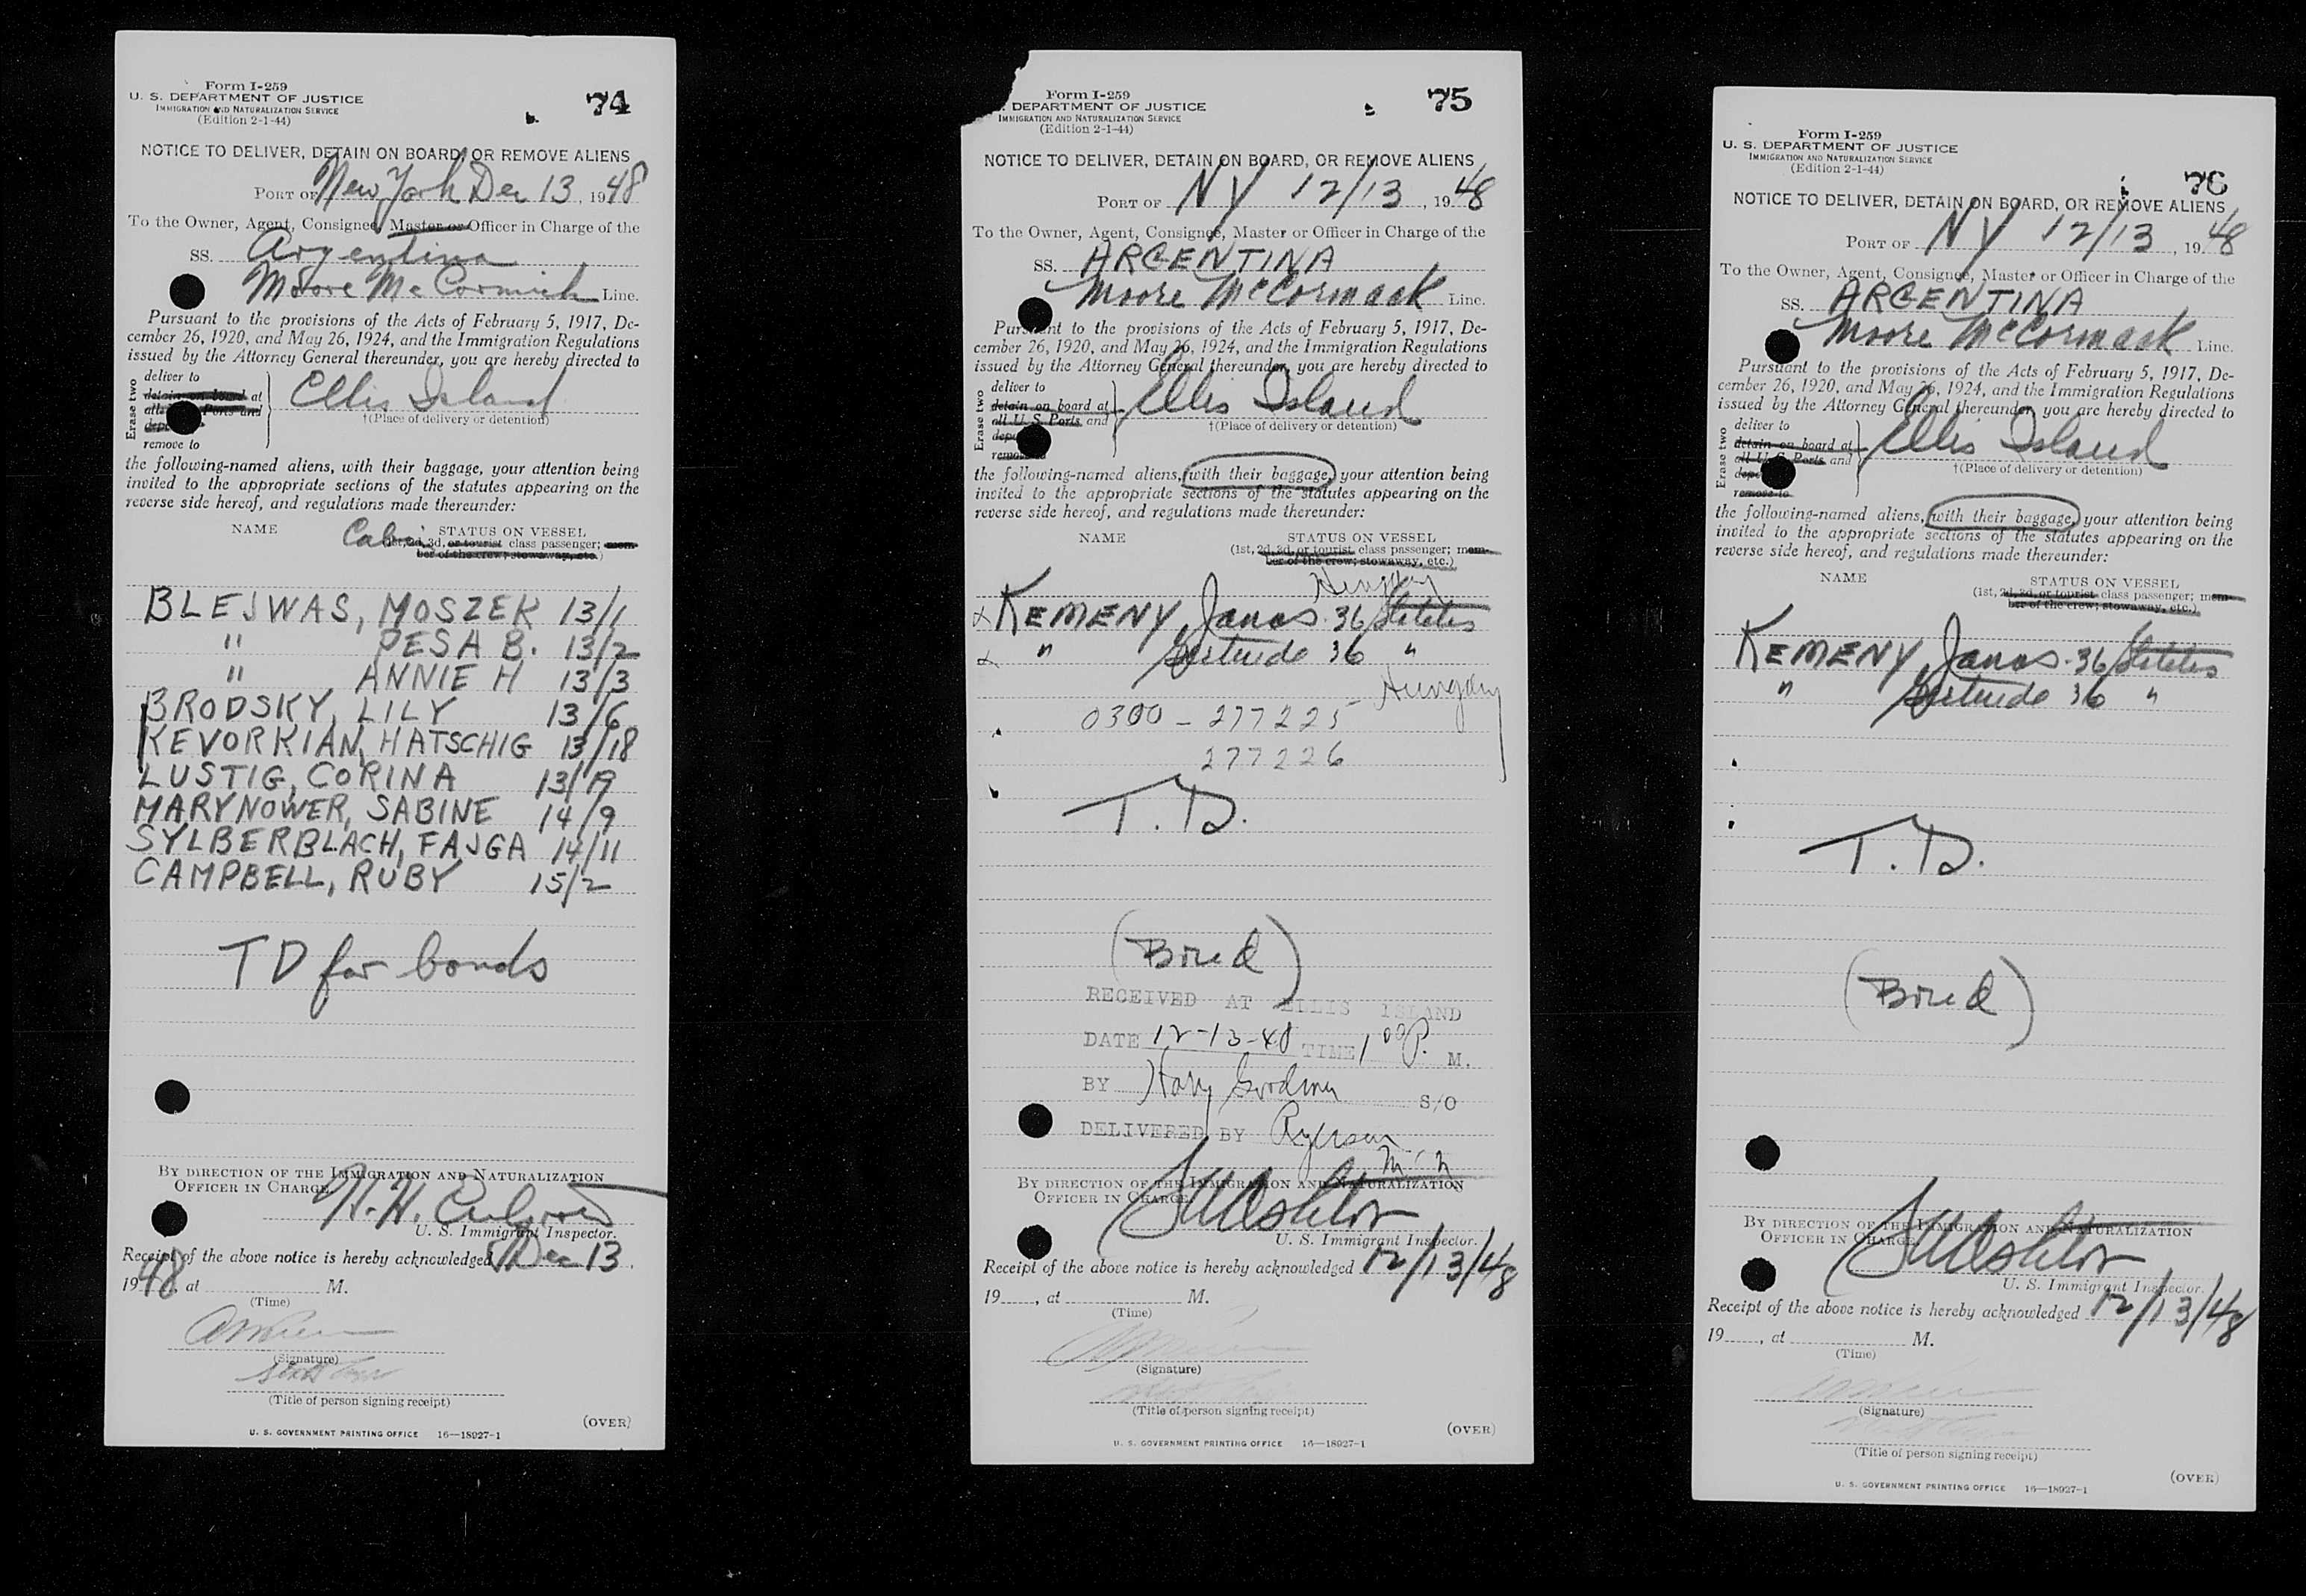 Form I-259
U. S. DEPARTMENT OF JUSTICE
IMMIGRATION AND NATURALIZATION SERVICE
(Edition 2-1-44)
74
NOTICE TO DELIVER, DETAIN ON BOARD, OR REMOVE ALIENS
PORT OF New York Dec 13, 1948
To the Owner, Agent, Consignee, Master or Officer in Charge of the
SS. Argentina
Moore McCormick Line.
Pursuant to the provisions of the Acts of February 5, 1917, De-
cember 26, 1920, and May 26, 1924, and the Immigration Regulations
issued by the Attorney General thereunder, you are hereby directed to
Erase two
deliver to
detain on board at
Ports and
remove to
Ellis Island
†(Place of delivery or detention)
the following-named aliens, with their baggage, your attention being
invited to the appropriate sections of the statutes appearing on the
reverse side hereof, and regulations made thereunder:
NAME
STATUS ON VESSEL
Cabin 3d, or tourist class passenger; mem-
ber of the crew; stowaway, etc.)
BLEJWAS, MOSZEK 13/1
" PESA B. 13/2
" ANNIE H 13/3
BRODSKY, LILY 13/6
KEVORKIAN, HATSCHIG 13/18
LUSTIG, CORINA 13/19
MARYNOWER, SABINE 14/9
SYLBERBLACH, FAJGA 14/11
CAMPBELL, RUBY 15/2
TD for bonds
BY DIRECTION OF THE IMMIGRATION AND NATURALIZATION
OFFICER IN CHARGE.
U. S. Immigrant Inspector.
Receipt of the above notice is hereby acknowledged Dec 13,
1948, at M.
(Time)
(Signature)
(Title of person signing receipt)
(OVER)
U. S. GOVERNMENT PRINTING OFFICE 16—18927-1
Form I-259
DEPARTMENT OF JUSTICE
IMMIGRATION AND NATURALIZATION SERVICE
(Edition 2-1-44)
75
NOTICE TO DELIVER, DETAIN ON BOARD, OR REMOVE ALIENS
PORT OF NY 12/13, 1948
To the Owner, Agent, Consignee, Master or Officer in Charge of the
SS. ARGENTINA
Moore McCormack Line.
Pursuant to the provisions of the Acts of February 5, 1917, De-
cember 26, 1920, and May 26, 1924, and the Immigration Regulations
issued by the Attorney General thereunder, you are hereby directed to
Erase two
deliver to
detain on board at
all U. S. Ports and
Ellis Island
†(Place of delivery or detention)
the following-named aliens, with their baggage, your attention being
invited to the appropriate sections of the statutes appearing on the
reverse side hereof, and regulations made thereunder:
NAME
STATUS ON VESSEL
(1st, 2d, 3d, or tourist class passenger; mem-
ber of the crew; stowaway, etc.)
Hungary
x KEMENY, Janos 36 Stateless
x " Gertrude 36 "
Hungary
0300 - 277225
277226
T.D.
(Bond)
RECEIVED AT ELLIS ISLAND
DATE 12-13-48 TIME 1 00 P. M.
BY Harry Goodman S/O
DELIVERED BY Ryerson
BY DIRECTION OF THE IMMIGRATION AND NATURALIZATION
OFFICER IN CHARGE.
U. S. Immigrant Inspector.
Receipt of the above notice is hereby acknowledged 12/13/48
19 , at M.
(Time)
(Signature)
(Title of person signing receipt)
(OVER)
U. S. GOVERNMENT PRINTING OFFICE 16—18927-1
Form I-259
U. S. DEPARTMENT OF JUSTICE
IMMIGRATION AND NATURALIZATION SERVICE
(Edition 2-1-44)
76
NOTICE TO DELIVER, DETAIN ON BOARD, OR REMOVE ALIENS
PORT OF NY 12/13, 1948
To the Owner, Agent, Consignee, Master or Officer in Charge of the
SS. ARGENTINA
Moore McCormack Line.
Pursuant to the provisions of the Acts of February 5, 1917, De-
cember 26, 1920, and May 26, 1924, and the Immigration Regulations
issued by the Attorney General thereunder, you are hereby directed to
Erase two
deliver to
detain on board at
all U. S. Ports and
remove to
Ellis Island
†(Place of delivery or detention)
the following-named aliens, with their baggage, your attention being
invited to the appropriate sections of the statutes appearing on the
reverse side hereof, and regulations made thereunder:
NAME
STATUS ON VESSEL
(1st, 2d, 3d, or tourist class passenger; mem-
ber of the crew; stowaway, etc.)
KEMENY, Janos 36 Stateless
" Gertrude 36 "
T.D.
(Bond)
BY DIRECTION OF THE IMMIGRATION AND NATURALIZATION
OFFICER IN CHARGE.
U. S. Immigrant Inspector.
Receipt of the above notice is hereby acknowledged 12/13/48
19 , at M.
(Time)
(Signature)
(Title of person signing receipt)
(OVER)
U. S. GOVERNMENT PRINTING OFFICE 16—18927-1